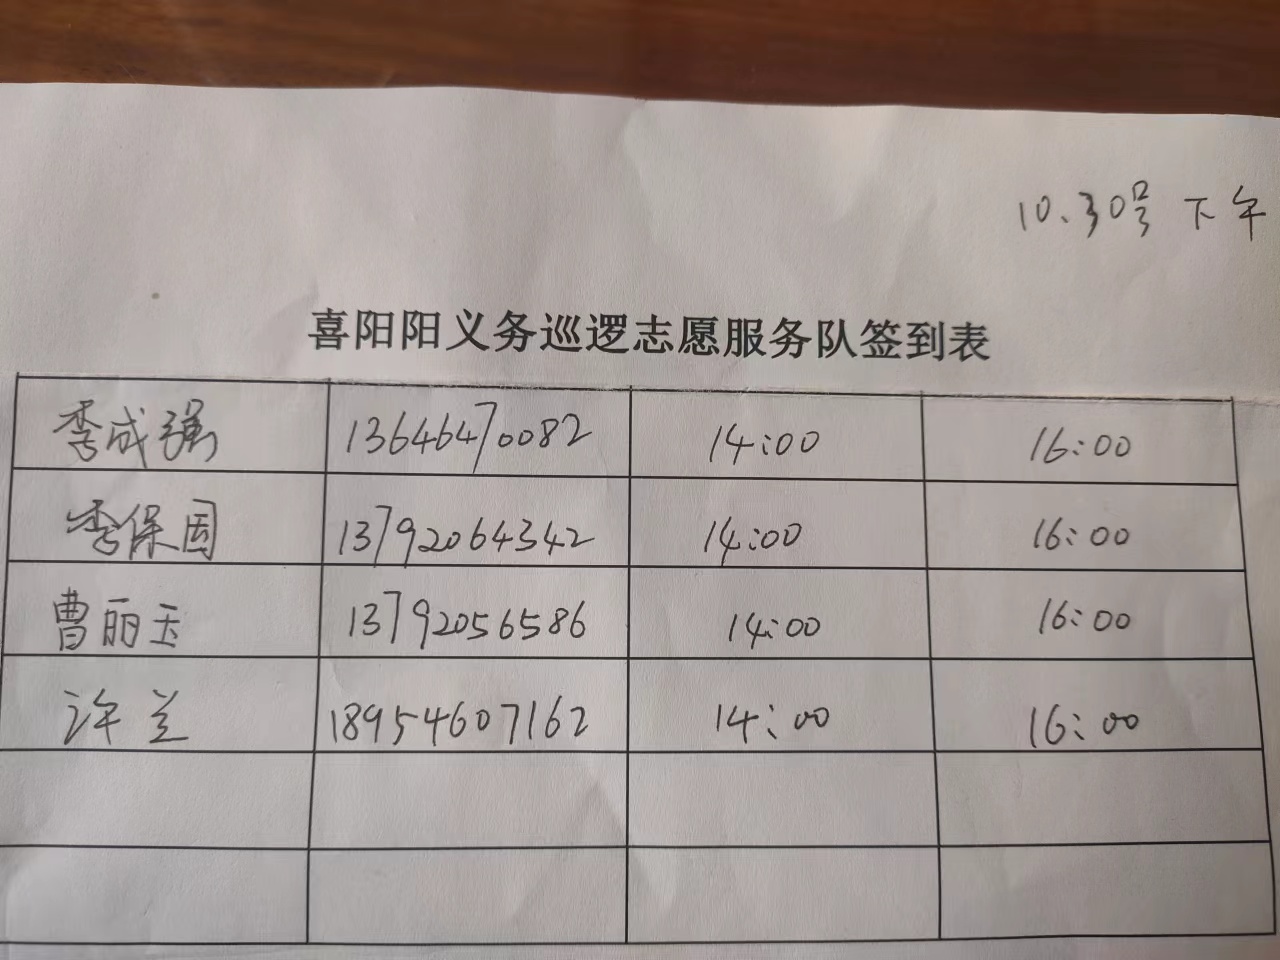 10.30号下午
喜阳阳义务巡逻志愿服务队签到表
李成强 13646470082 14:00 16:00
李保国 13792064342 14:00 16:00
曹丽玉 13792056586 14:00 16:00
许兰 18954607162 14:00 16:00